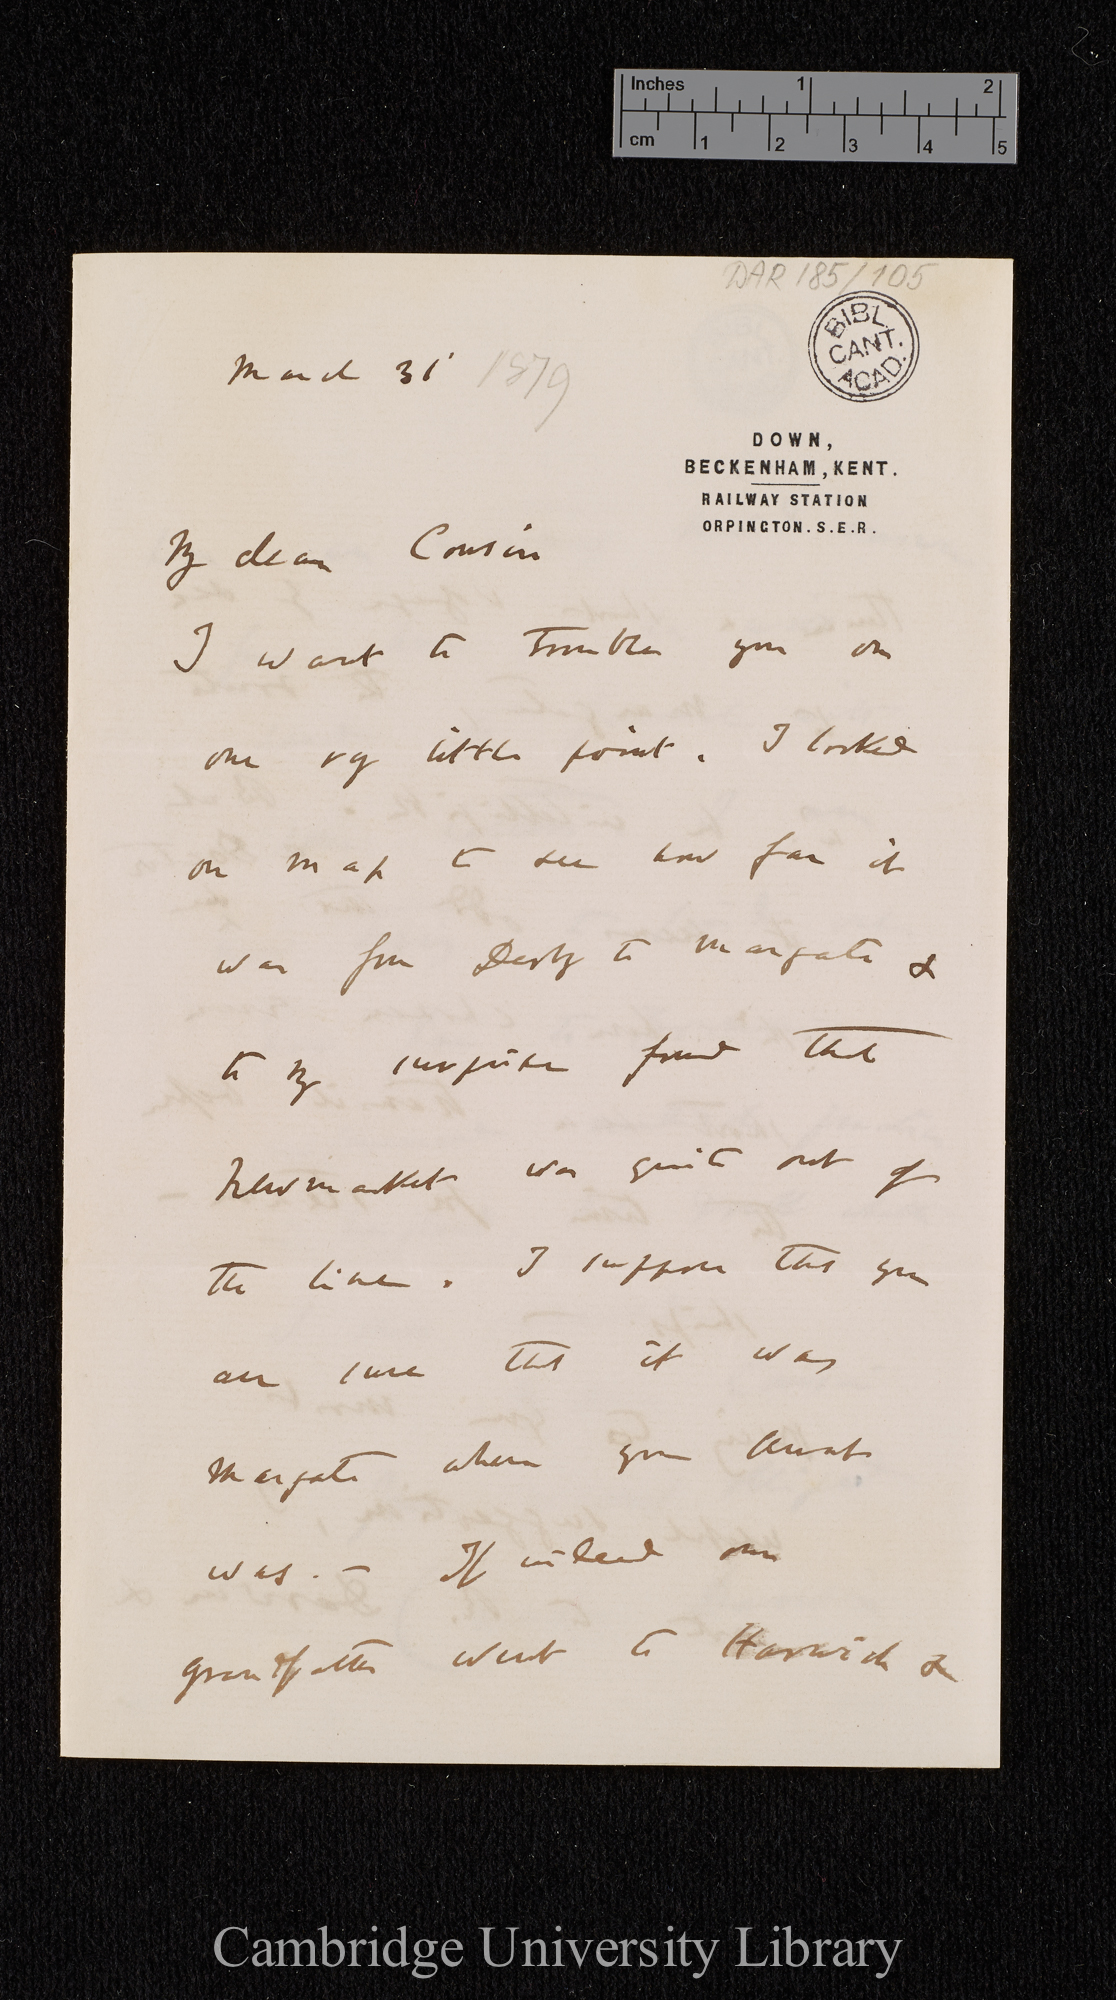 Inches 1 2
cm 1 2 3 4 5
DAR 185/105
BIBL.
CANT.
ACAD.
March 31st 1879
DOWN,
BECKENHAM, KENT.
RAILWAY STATION
ORPINGTON. S.E.R.
My dear Cousin
I want to trouble you on
one vy little point. I looked
on map to see how far it
was from Derby to Margate &
to my surprise found that
Newmarket was quite out of
the line. I suppose that you
are sure that it was
Margate where your Aunt
was. — If indeed our
grandfather went to Harwich &
Cambridge University Library